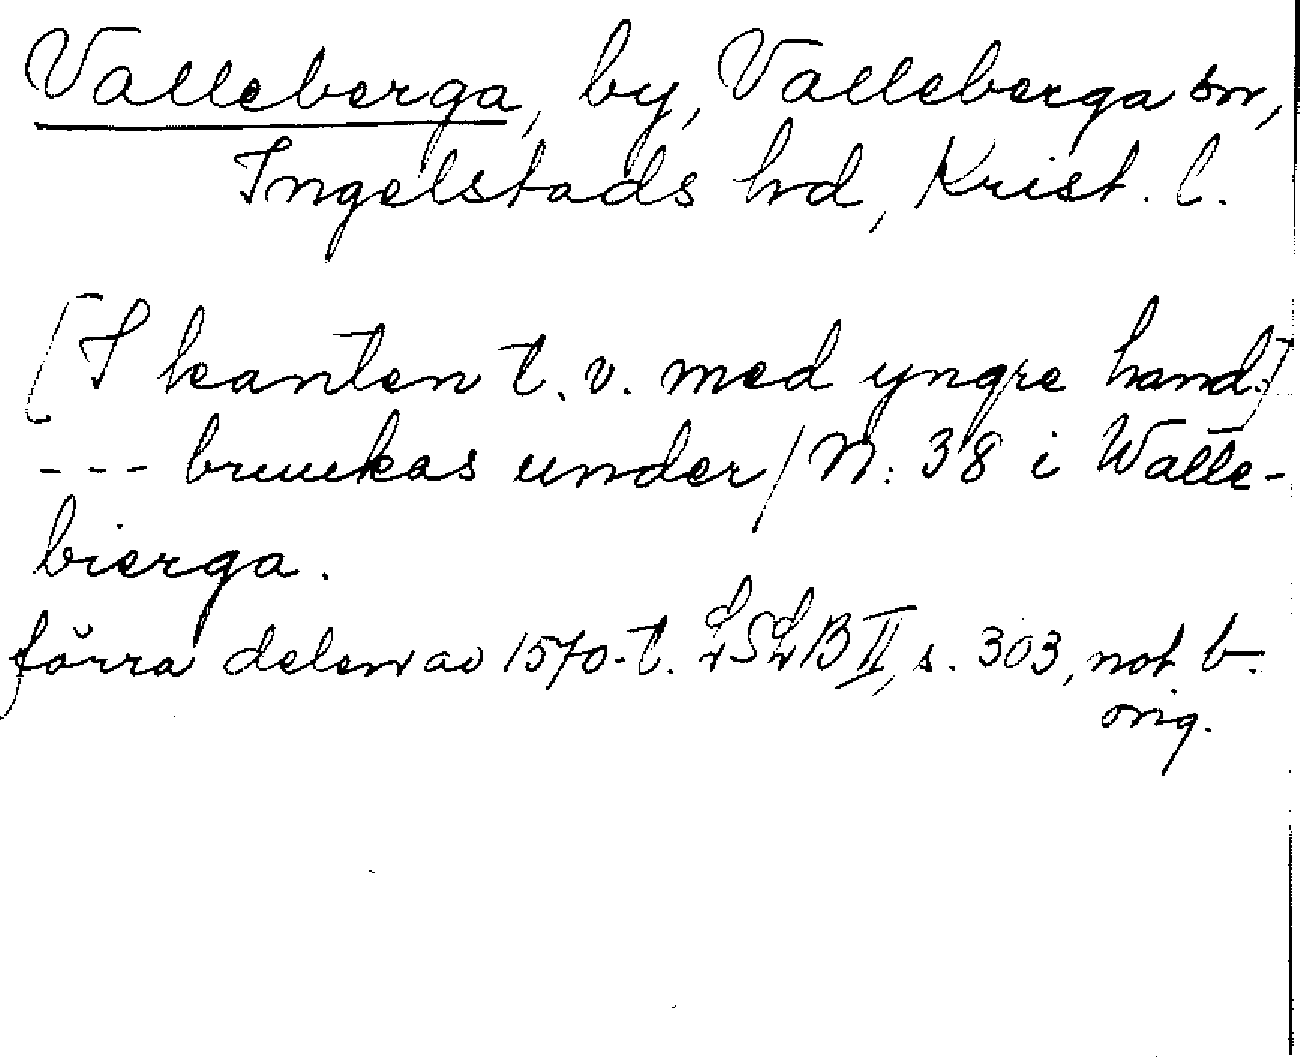 Valleberga, by, Valleberga sn,
Ingelstads hd, Krist. l.
[I kanten t.v. med yngre hand:]
--- bruukas under / N: 38 i Walle-
bierga.
förra delen av 1570-t. LSLB II, s. 303, not b.
orig.